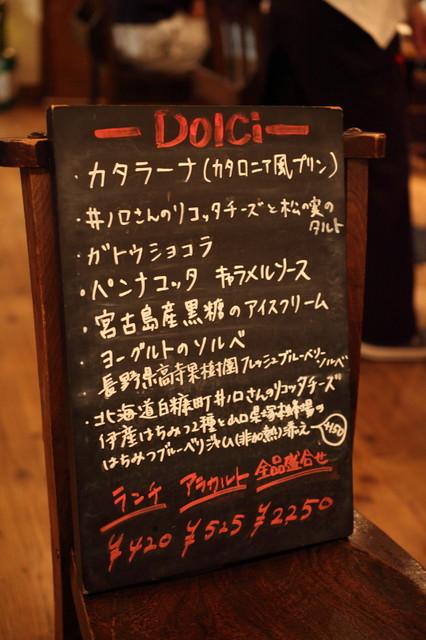 Dolci
・カタラーナ(カタロニア風プリン)
・井ノ口さんのリコッタチーズと松の実の
タルト
・ガトウショコラ
・ペンナコッタ キャラメルソース
・宮古島産黒糖のアイスクリーム
・ヨーグルトのソルベ
・長野県高寺果樹園フレッシュブルーベリーソルベ
・北海道白糠町井ノ口さんのリコッタチーズ
伊産はちみつ2種と山口県塚
はちみつブルーベリージャム(非加熱)添え
ランチ アラカルト 全品盛合せ
¥420 ¥525 ¥2250